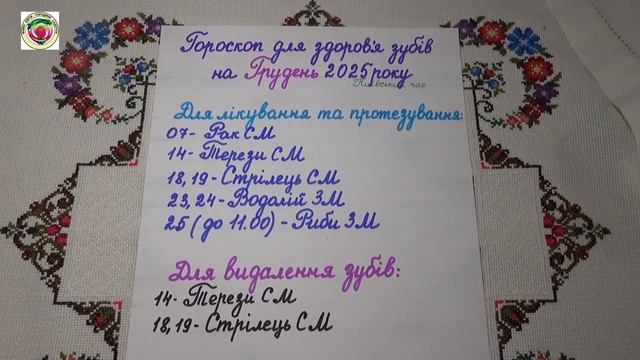 Гороскоп для здоров'я зубів
на Грудень 2025 року
Київський час
Для лікування та протезування:
07- Рак СМ
14- Терези СМ
18, 19- Стрілець СМ
23, 24- Водолій ЗМ
25 ( до 11.00) - Риби ЗМ
Для видалення зубів:
14- Терези СМ
18, 19- Стрілець СМ